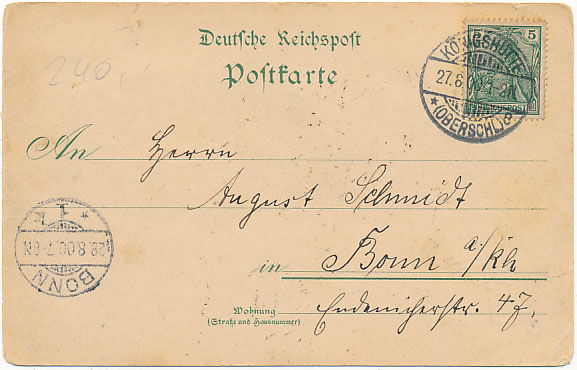 Deutsche Reichspost
Postkarte
240,-
5
REICHSPOST
KÖNIGSHÜTTE
27.8.00
* (OBERSCHL) a
An Herrn
August Schmidt
in Bonn a/Rh
Wohnung
(Straße und Hausnummer)
Endenicherstr. 47.
BONN
28.8.00.7-8N
* 1 k